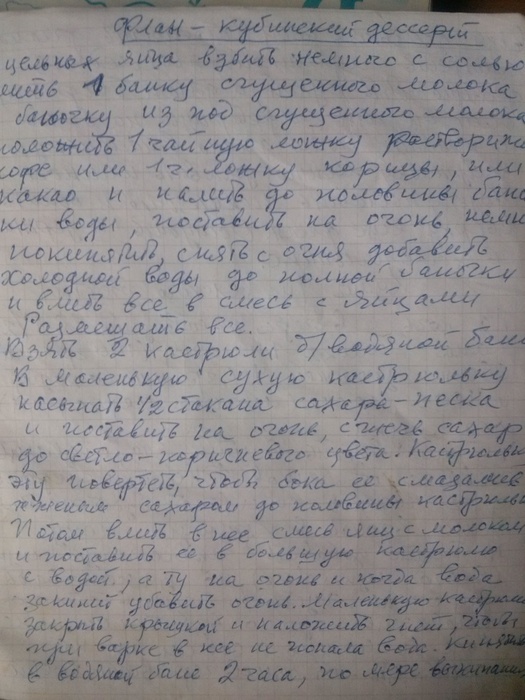 Флан – кубинский десерт
цельных яйца взбить немного с солью
лить 1 банку сгущенного молока
баночку из под сгущенного молока
положить 1 чайную ложку раствори
кофе или 1 ч. ложку корицы, или
какао и налить до половины бан
ки воды, поставить на огонь, нем
покипятить, снять с огня добавить
холодной воды до полной баночки
и влить все в смесь с яйцами
Размешать все.
Взять 2 кастрюли д/водяной бан
В маленькую сухую кастрюльку
насыпать 1/2 стакана сахара-песка
и поставить на огонь, сжечь сахар
до светло-коричневого цвета. Кастрюльк
эту повертеть, чтобы бока ее смазались
жженым сахаром до половины кастрюль
Потом влить в нее смесь яиц с молоком
и поставить ее в большую кастрюлю
с водой, а ту на огонь и когда вода
закипит убавить огонь. Маленькую кастрюл
закрыть крышкой и наложить чтоб
при варке в нее не попала вода.
в водяной бане 2 часа, по мере выкипани